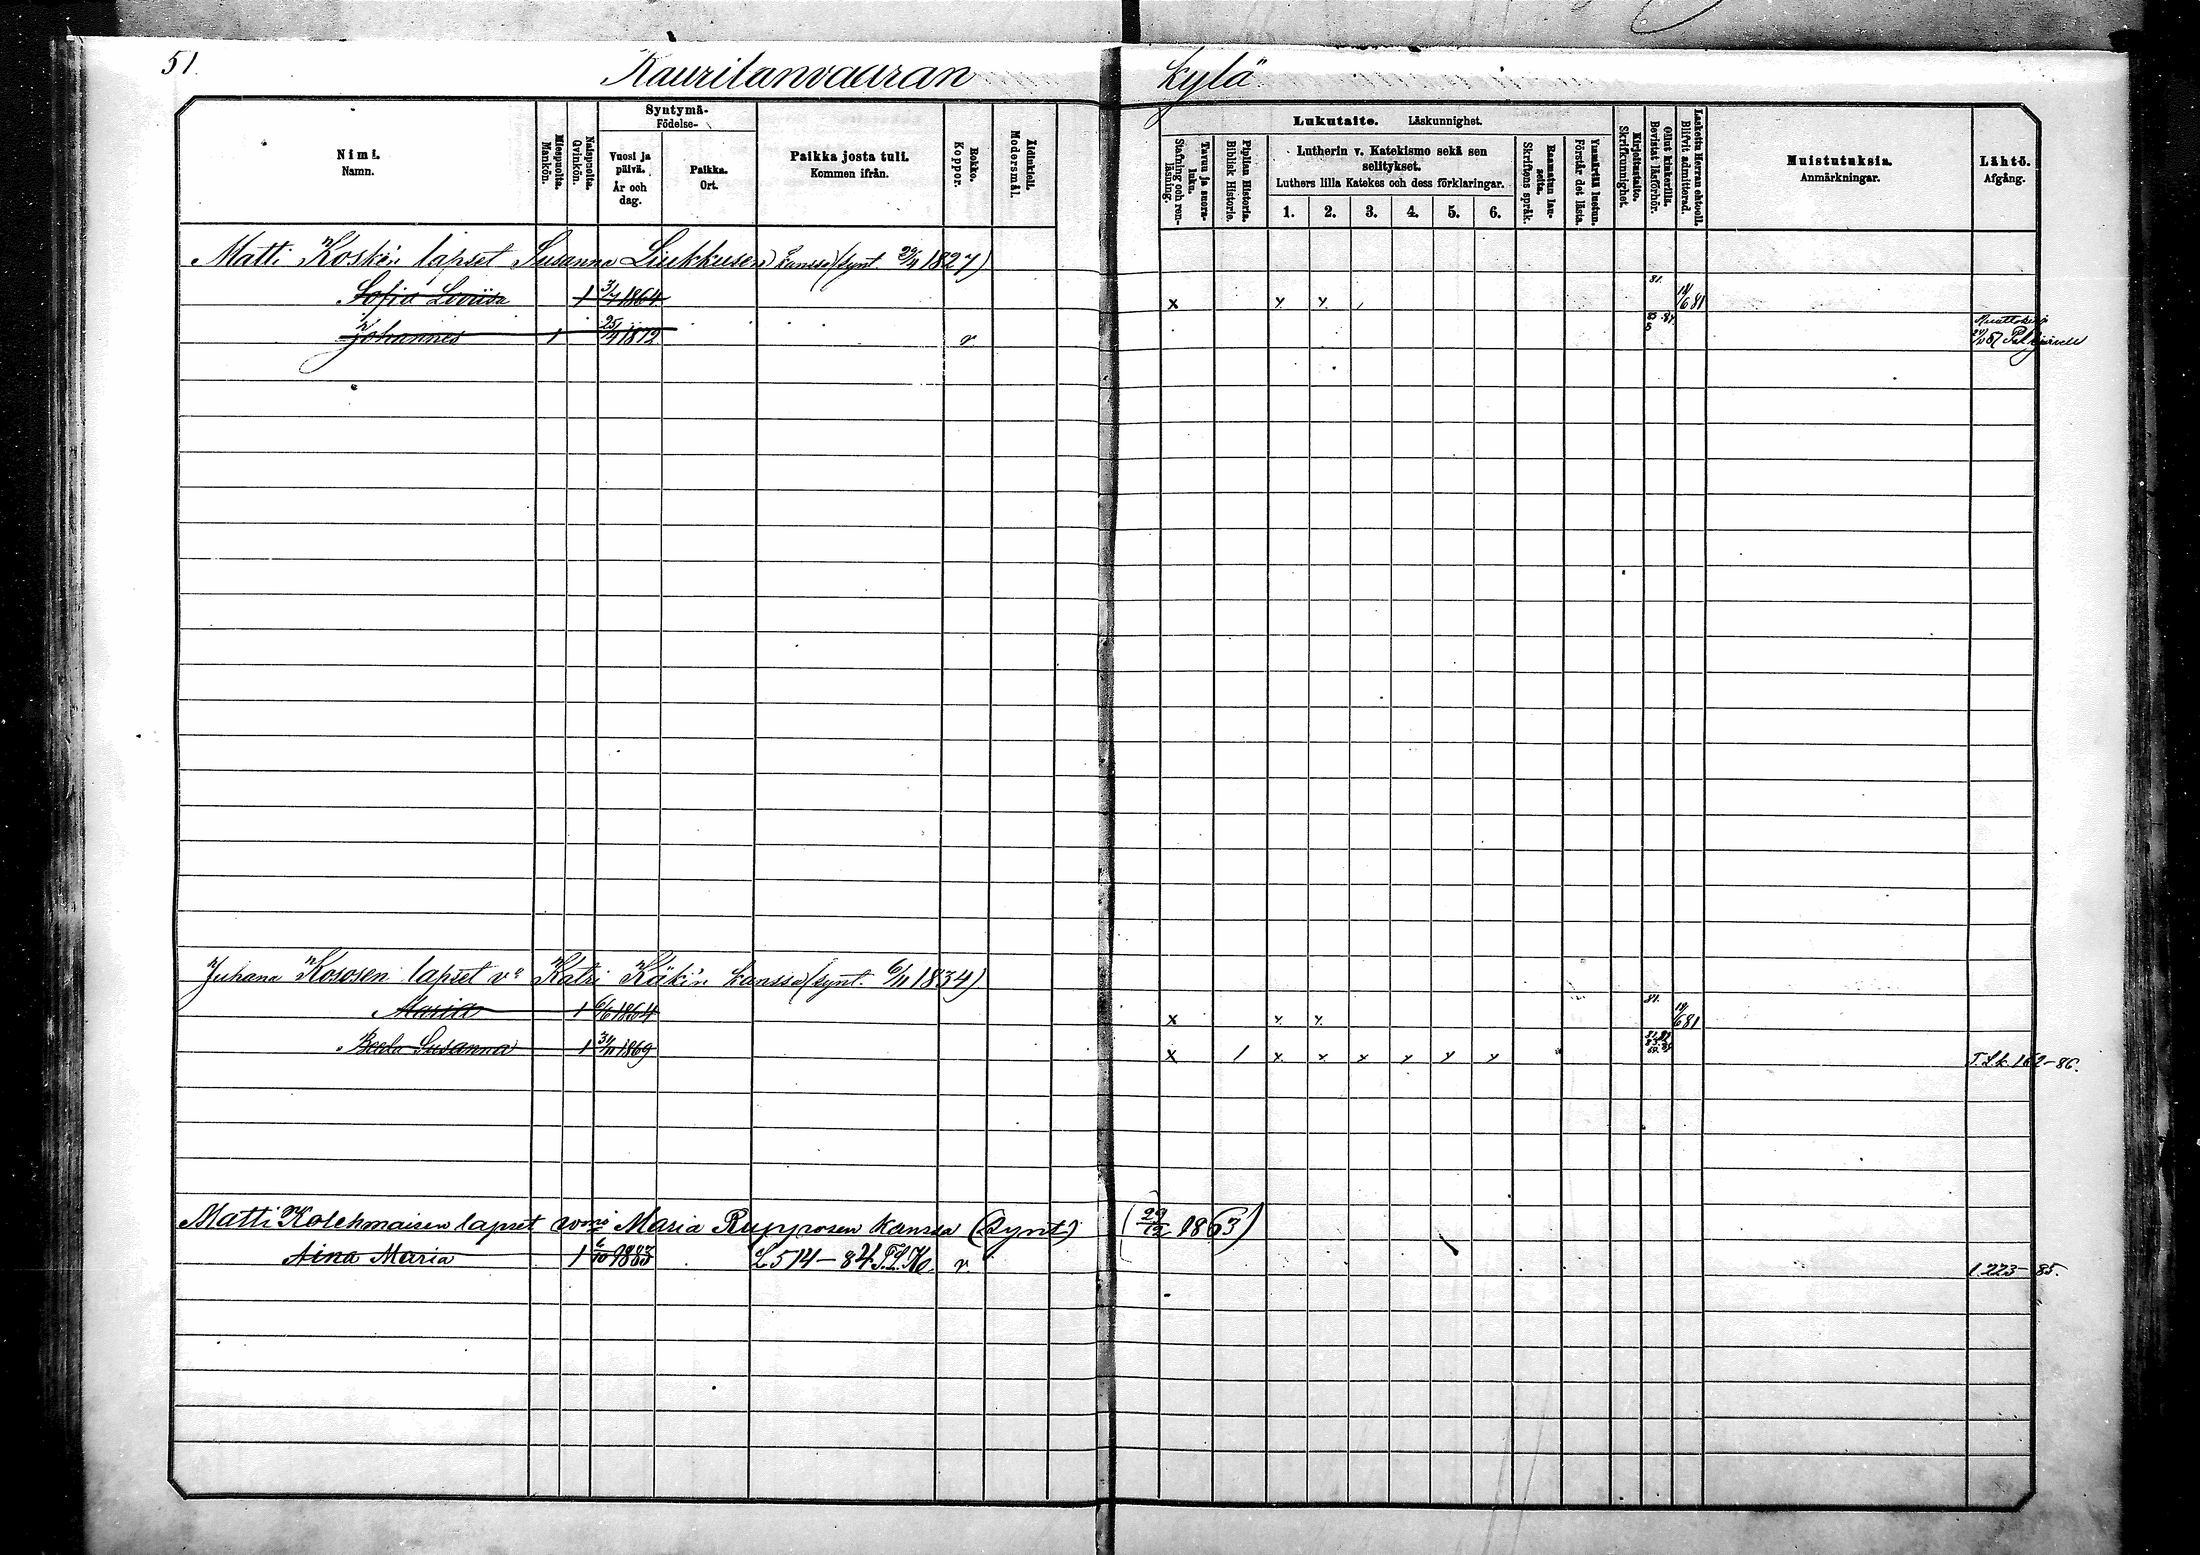 51.
Kaurilanvaaran kylä
Nimi.
Namn.
Miespuolia.
Mankön.
Naispuolia.
Qvinkön.
Syntymä-
Födelse-
Vuosi ja
päivä.
År och
dag.
Paikka.
Ort.
Paikka josta tuli.
Kommen ifrån.
Rokko.
Koppor.
Äidinkieli.
Modersmål.
Lukutaito. Läskunnighet.
Tavuu ja suora-
luku.
Stafning och ren-
läsning.
Piplian Historia.
Biblisk Historie.
Lutherin v. Katekismo sekä sen
selitykset.
Luthers lilla Katekes och dess förklaringar.
1. 2. 3. 4. 5. 6.
Raamatun lau-
seita.
Skriftens språk.
Ymmärtää luetun.
Förstår det lästa.
Kirjoitustaito.
Skrifkunnighet.
Ollut kinkerillä.
Bevistat läsförhör.
Laskettu Herran ehtoolle.
Blifvit admitterad.
Muistutuksia.
Anmärkningar.
Lähtö.
Afgång.
Matti Kosken lapset Susanna Liukkusen kanssa (synt. 1827)
Sofia Loviisa 1 3/7 1864 x x x 81. 14/6 81
Johannes 1 25/ 1872 v. 83 84 87 Pälkjärvelle
Juhana Kososen lapset v:o Katri Käki'n kanssa (synt. 6/11 1834)
Maria 1 6/6 1864 x x x 81. 14/6 81
Beata Susanna 1 1869 x 1 x x x x x x T.L.k. 162-86.
Matti Kolehmaisen lapset vmo Maria Rupposen kanssa (synt) (29/12 1863)
Aina Maria 1 6/10 1883 L 514-84 T.L.Ko. v. l. 223-85.